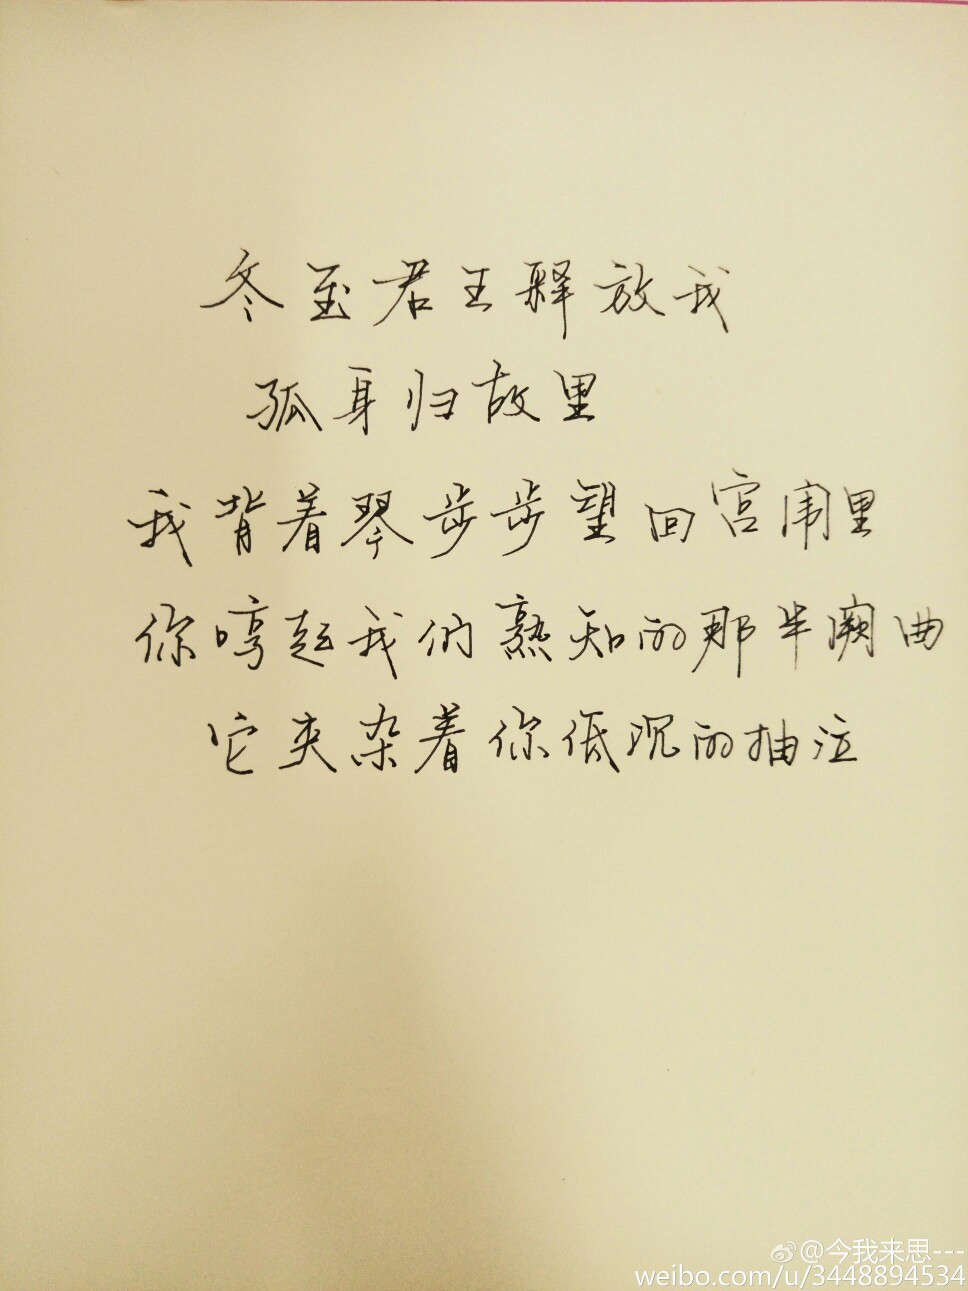 冬至君王释放我
孤身归故里
我背着琴步步望回宫闱里
你哼起我们熟知的那半阙曲
它夹杂着你低沉的抽泣
@今我来思---
weibo.com/u/3448894534